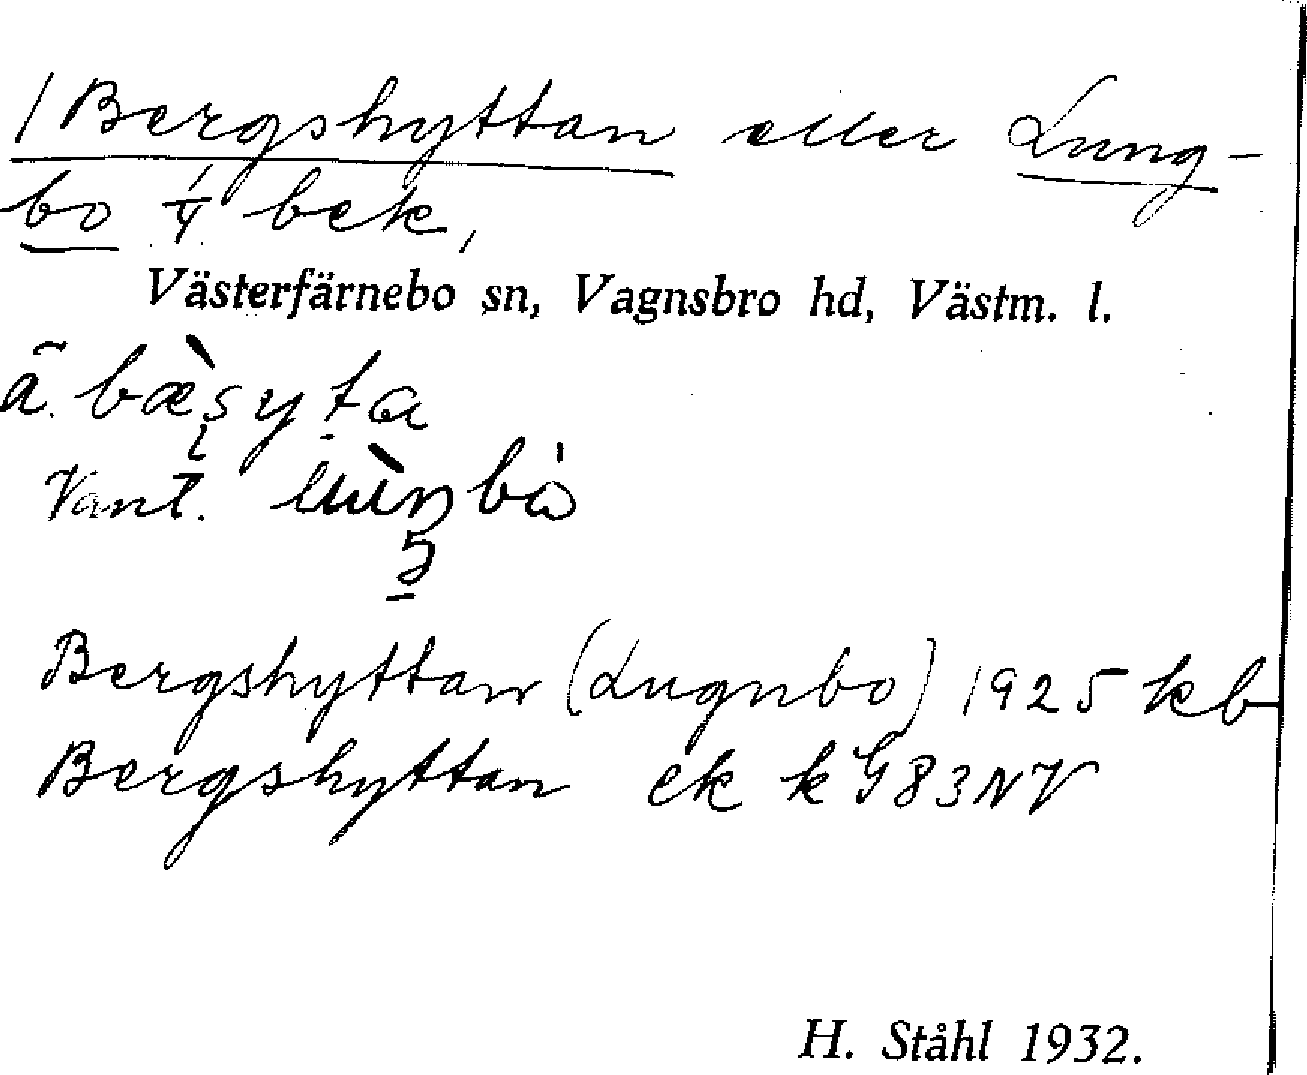 / Bergshyttan eller Lung-
bo 1/4 bek,
Västerfärnebo sn, Vagnsbro hd, Västm. l.
Vant.
Bergshyttan (Lugnbo) 1925 kb
Bergshyttan ek k G83NV
H. Ståhl 1932.